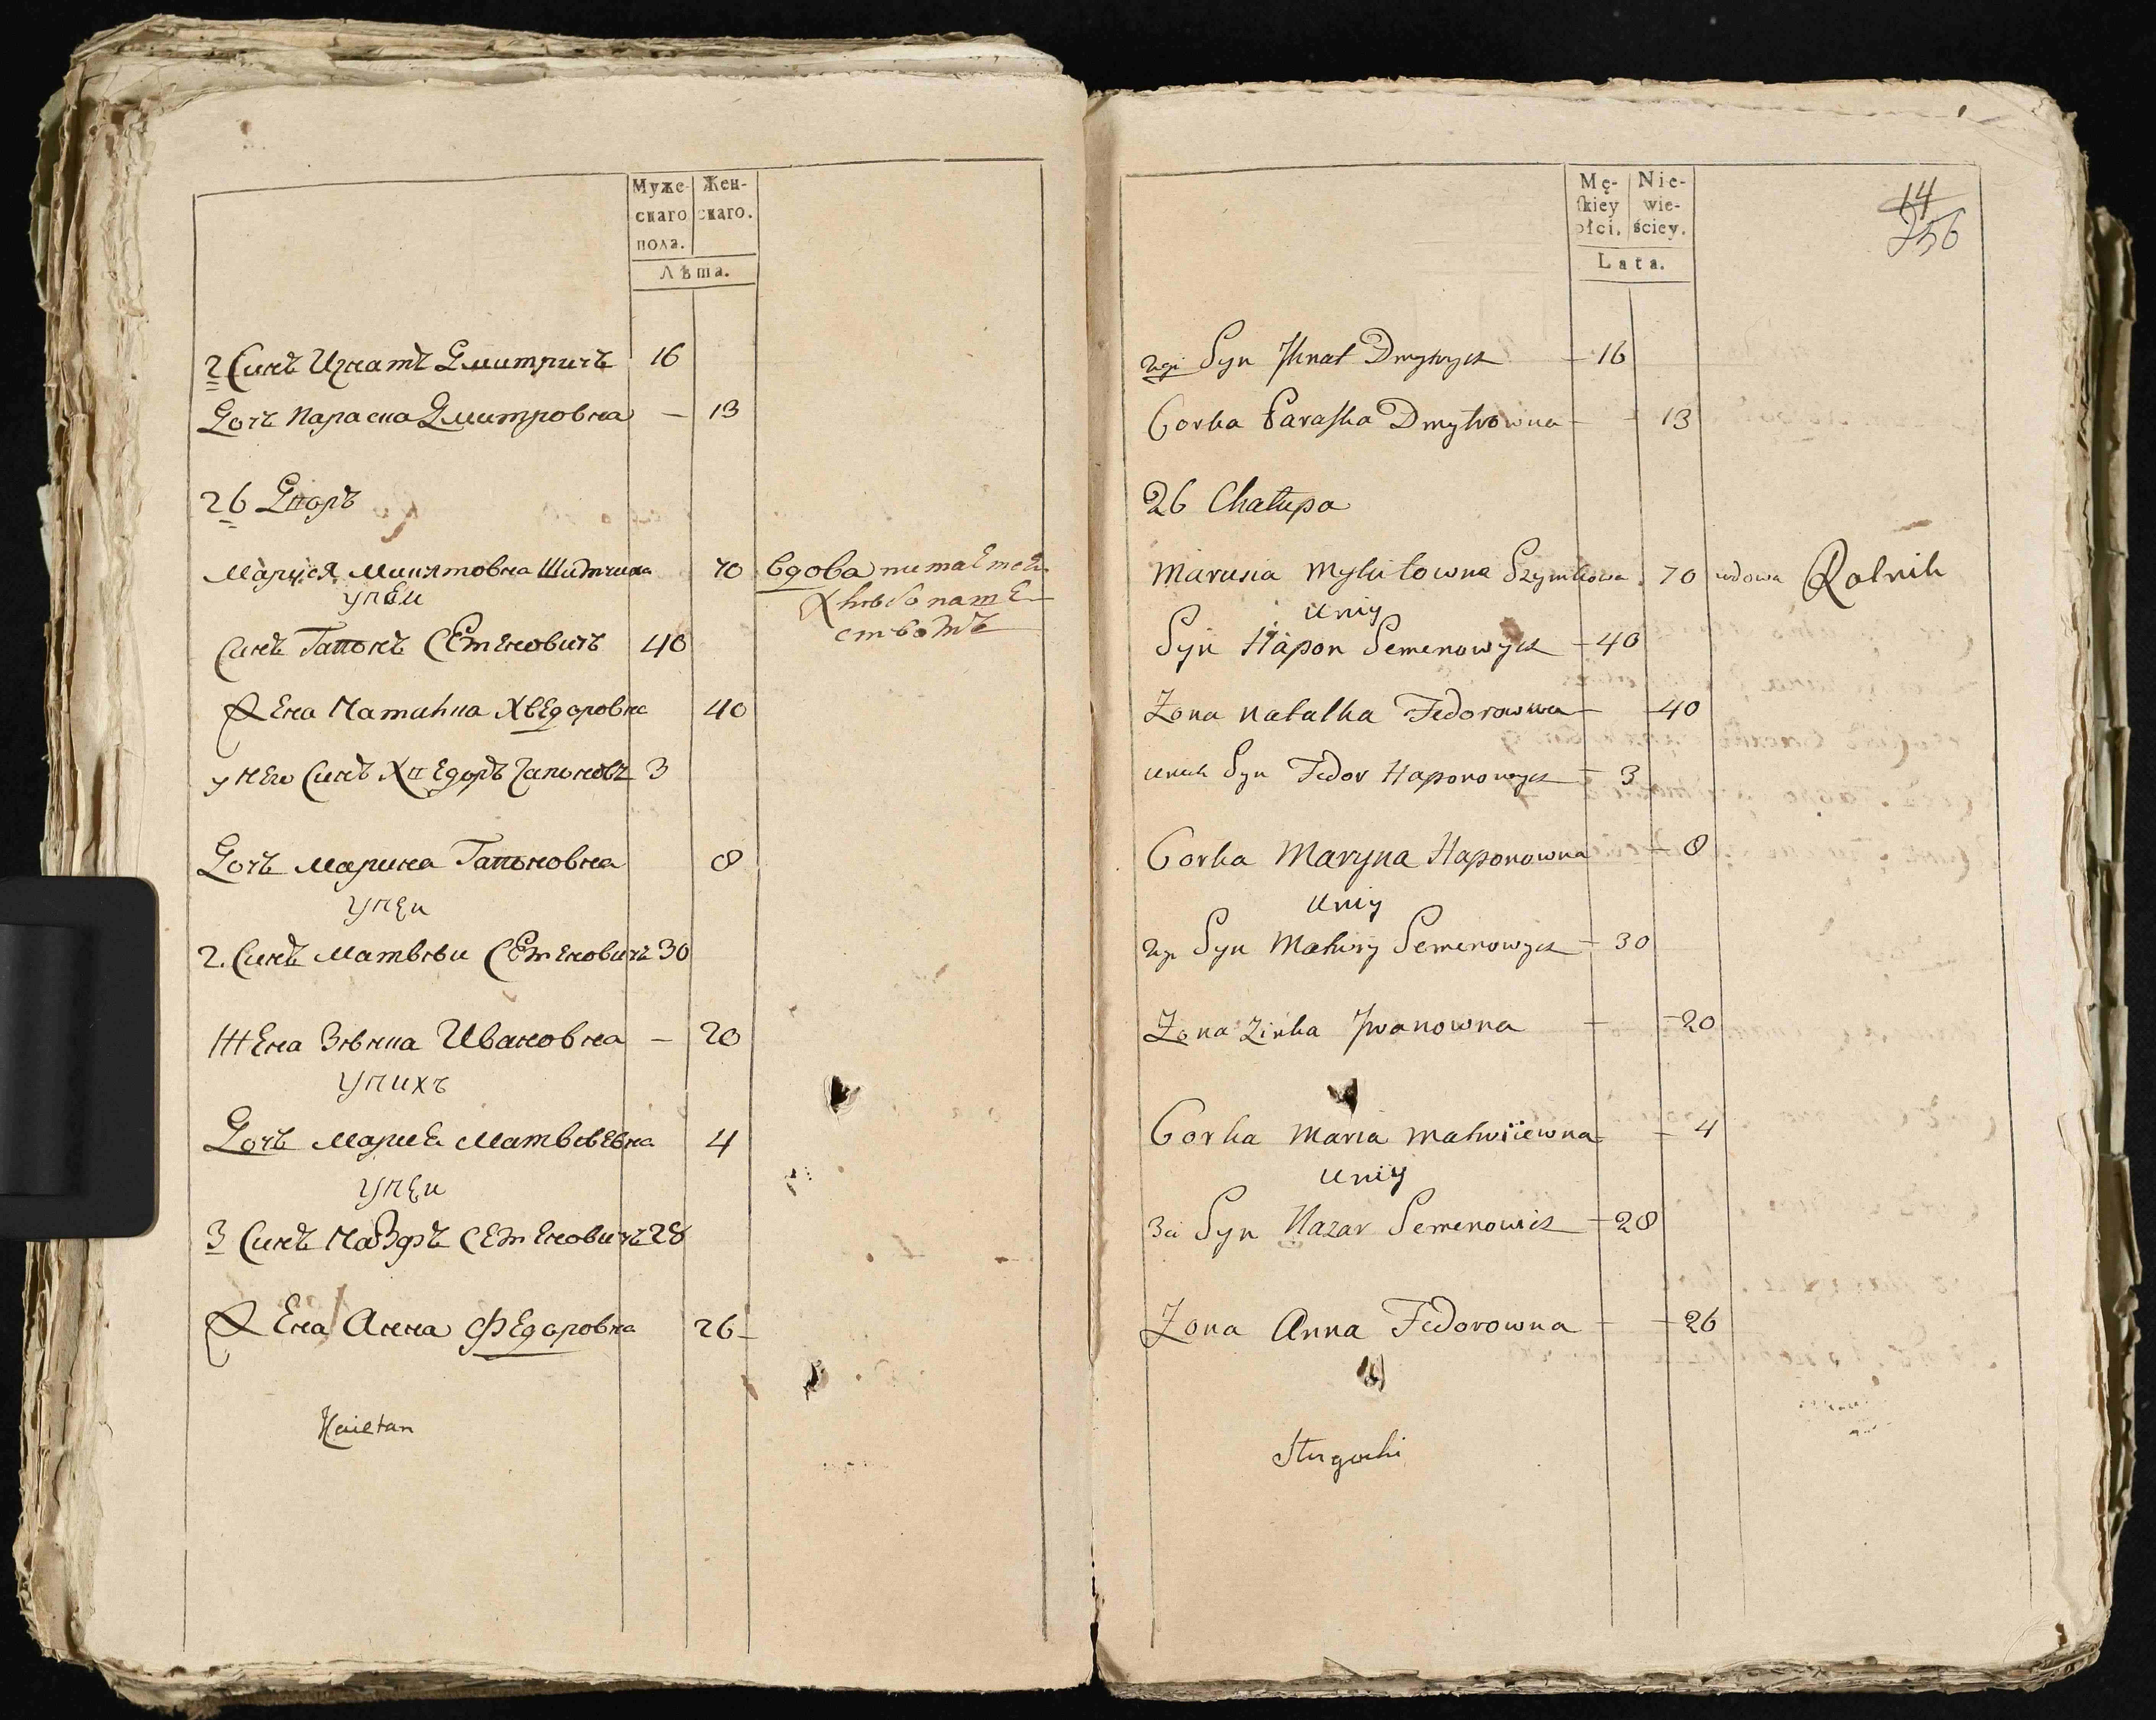 Муже-
скаго
пола.
Жен-
скаго.
Лѣта.
2 Синъ Игнатъ Дмитричъ 16
Дочъ Параска Дмитровна — 13
26 Дворъ
Маруся Микитовна 70 вдова питается
хлѣбопаше-
ствомъ
у неи
Синъ Гапонъ Семеновичъ 40
Жена Наталка Хведоровна 40
у него Синъ Хведоръ Гапоновъ 3
Дочъ Марина Гапоновна 8
у неи
2. Синъ Матвѣи Семеновичъ 30
Жена Зѣнка Ивановна — 20
у нихъ
Дочъ Мария Матвѣевна 4
у неи
3 Синъ Назаръ Семеновичъ 28
Жена Анна Федоровна 26
Kaietan
Mę-
skiey
płci.
Nie-
wie-
ściey.
Lata.
14
256
2gi Syn Ihnat Dmytrycz 16
Corka Paraska Dmytrowna 13
26 Chałupa
Marusia Mykitowna Szymkowa 70 wdowa Rolnik
U niy
Syn Hapon Semenowycz 40
Zona Natalka Fedorowna 40
U nich Syn Fedor Haponowycz 3
Corka Maryna Haponowna 8
U niy
2gi Syn Matwiy Semenowycz 30
Zona Zinka Iwanowna 20
Corka Maria Matwiiewna 4
U niy
3ci Syn Nazar Semenowicz 28
Zona Anna Fedorowna 26